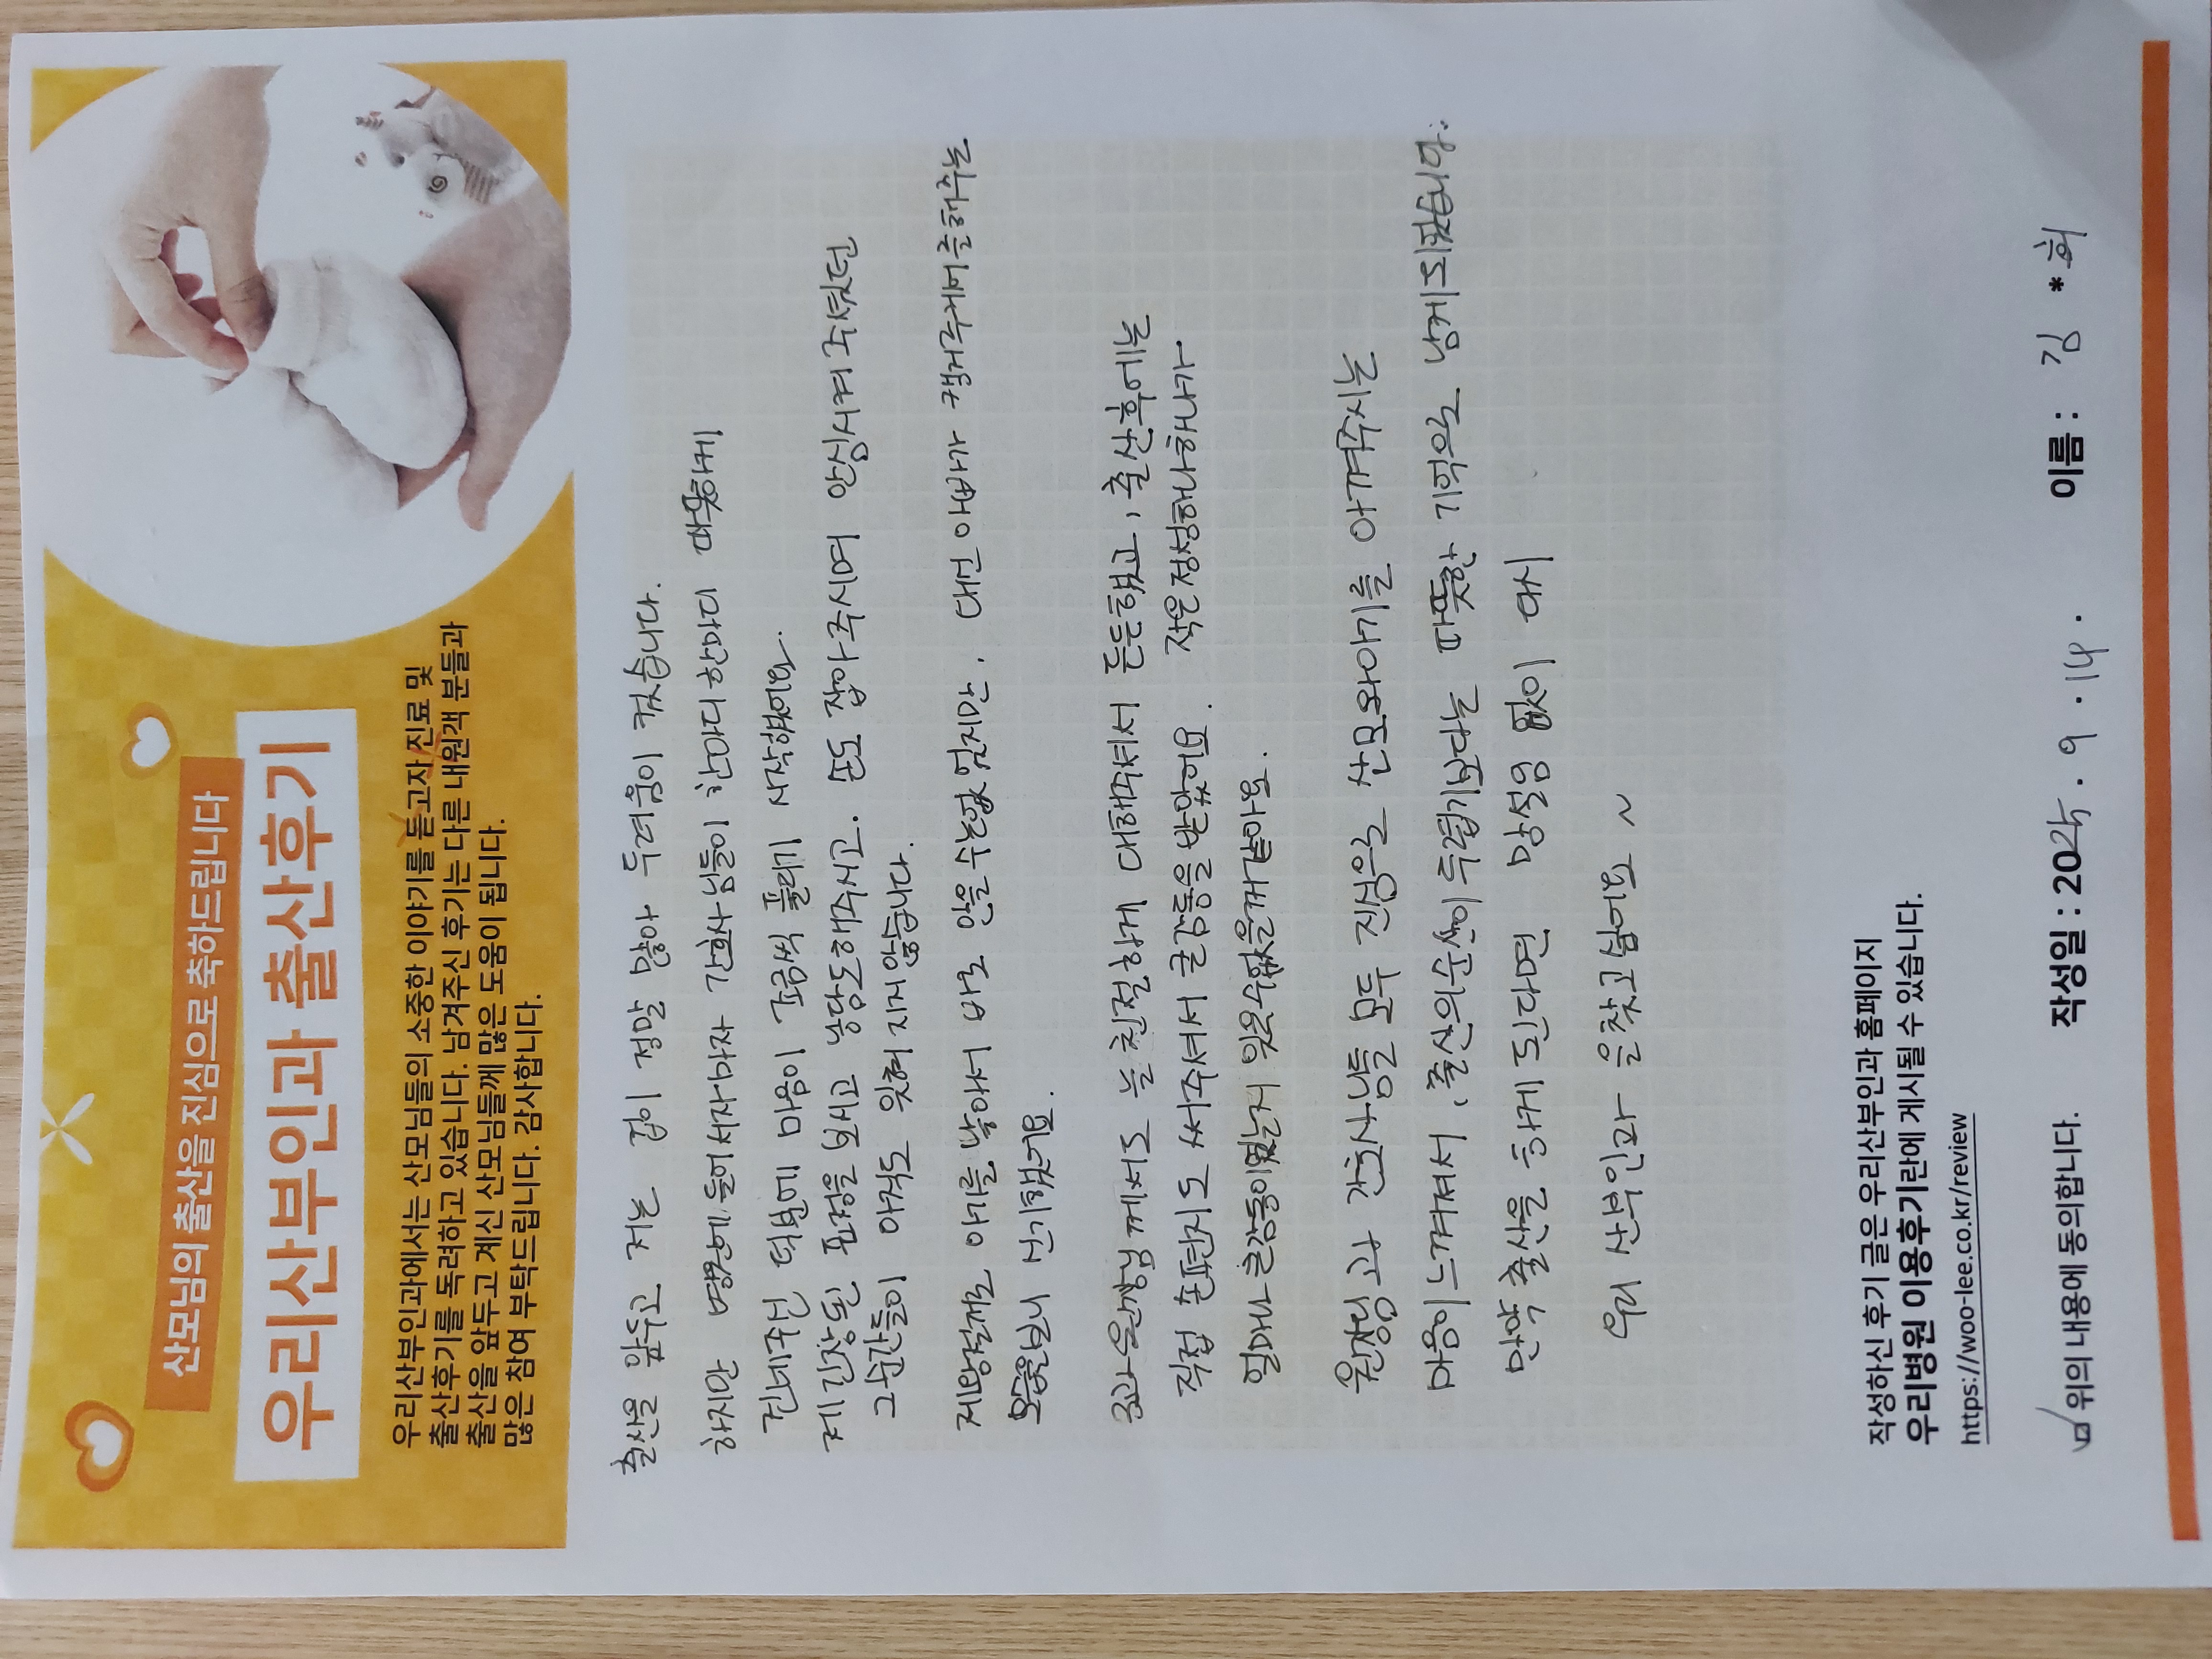 산모님의 출산을 진심으로 축하드립니다
우리산부인과 출산후기
우리산부인과에서는 산모님들의 소중한 이야기를 듣고자 진료 및
출산후기를 독려하고 있습니다. 남겨주신 후기는 다른 내원객 분들과
출산을 앞두고 계신 산모님들께 많은 도움이 됩니다.
많은 참여 부탁드립니다. 감사합니다.
출산을 앞두고 저는 겁이 정말 많아 두려움이 컸습니다.
하지만 병원에 들어서자마자 간호사님들이 한마디 한마디 따뜻하게
건네주신 덕분에 마음이 조금씩 풀리기 시작했어요.
제 긴장된 표정을 보시고 농담도 해주시고. 손도 잡아주시며 안심시켜 주셨던
그 순간들이 아직도 잊혀지지 않습니다.
제왕절개로 아기를 낳아서 바로 안을 수는 없었지만, 대신 아빠가 캥거루케어를 해주는
모습을 보니 신기했어요.
3과 원장님께서도 늘 친절하게 대해주셔서 든든했고, 출산후에는
직접 손편지도 써주셔서 큰 감동을 받았어요. 작은 정성 하나하나가
얼마나 큰 감동이었는지 잊을 수 없을꺼 같아요.
원장님과 간호사님들 모두 진심으로 산모와 아기를 아껴주시는
마음이 느껴져서, 출산의 순간이 두렵기보다는 따뜻한 기억으로 남게 되었습니다.
만약 출산을 하게 된다면 망설임 없이 다시
우리 산부인과 을 찾고 싶어요 ~
작성하신 후기 글은 우리산부인과 홈페이지
우리병원 이용후기란에 게시될 수 있습니다.
https://woo-lee.co.kr/review
위의 내용에 동의합니다. 작성일 : 2025. 9. 14. 이름 : 김 * 희